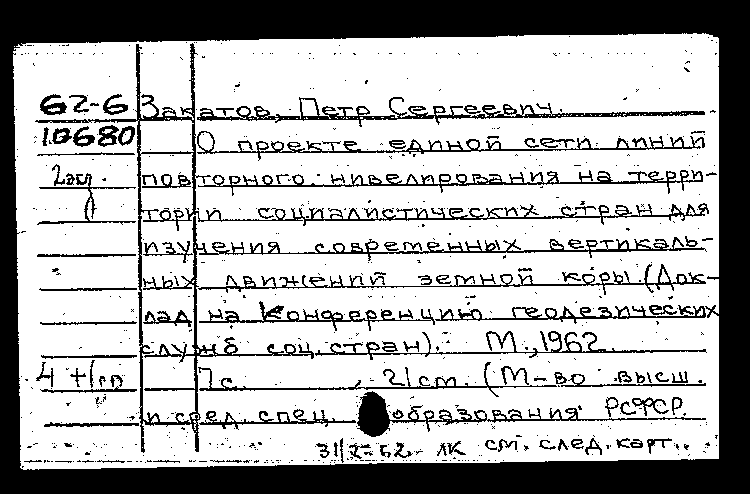 62-6 Закатов, Петр Сергеевич.
10680 О проекте единой сети линий
2 экз. повторного нивелирования на терри-
тории социалистических стран для
изучения современных вертикаль-
ных движений земной коры. (Док-
лад на конференцию геодезических
служб соц. стран). М., 1962.
7 с. , 21 см. (М-во высш.
и сред. спец. образования РСФСР.
см. след. карт.